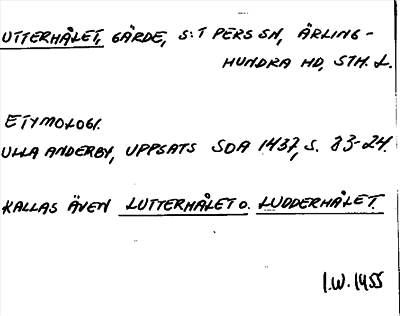 UTTERHÅLET, GÄRDE, S:T PERS SN, ÄRLING-
HUNDRA HD, STH. L.
ETYMOLOGI.
ULLA ANDERBY, UPPSATS SOA 1437, S. 23-24.
KALLAS ÄVEN LUTTERHÅLET O. LUDDERHÅLET.
I.W. 1955